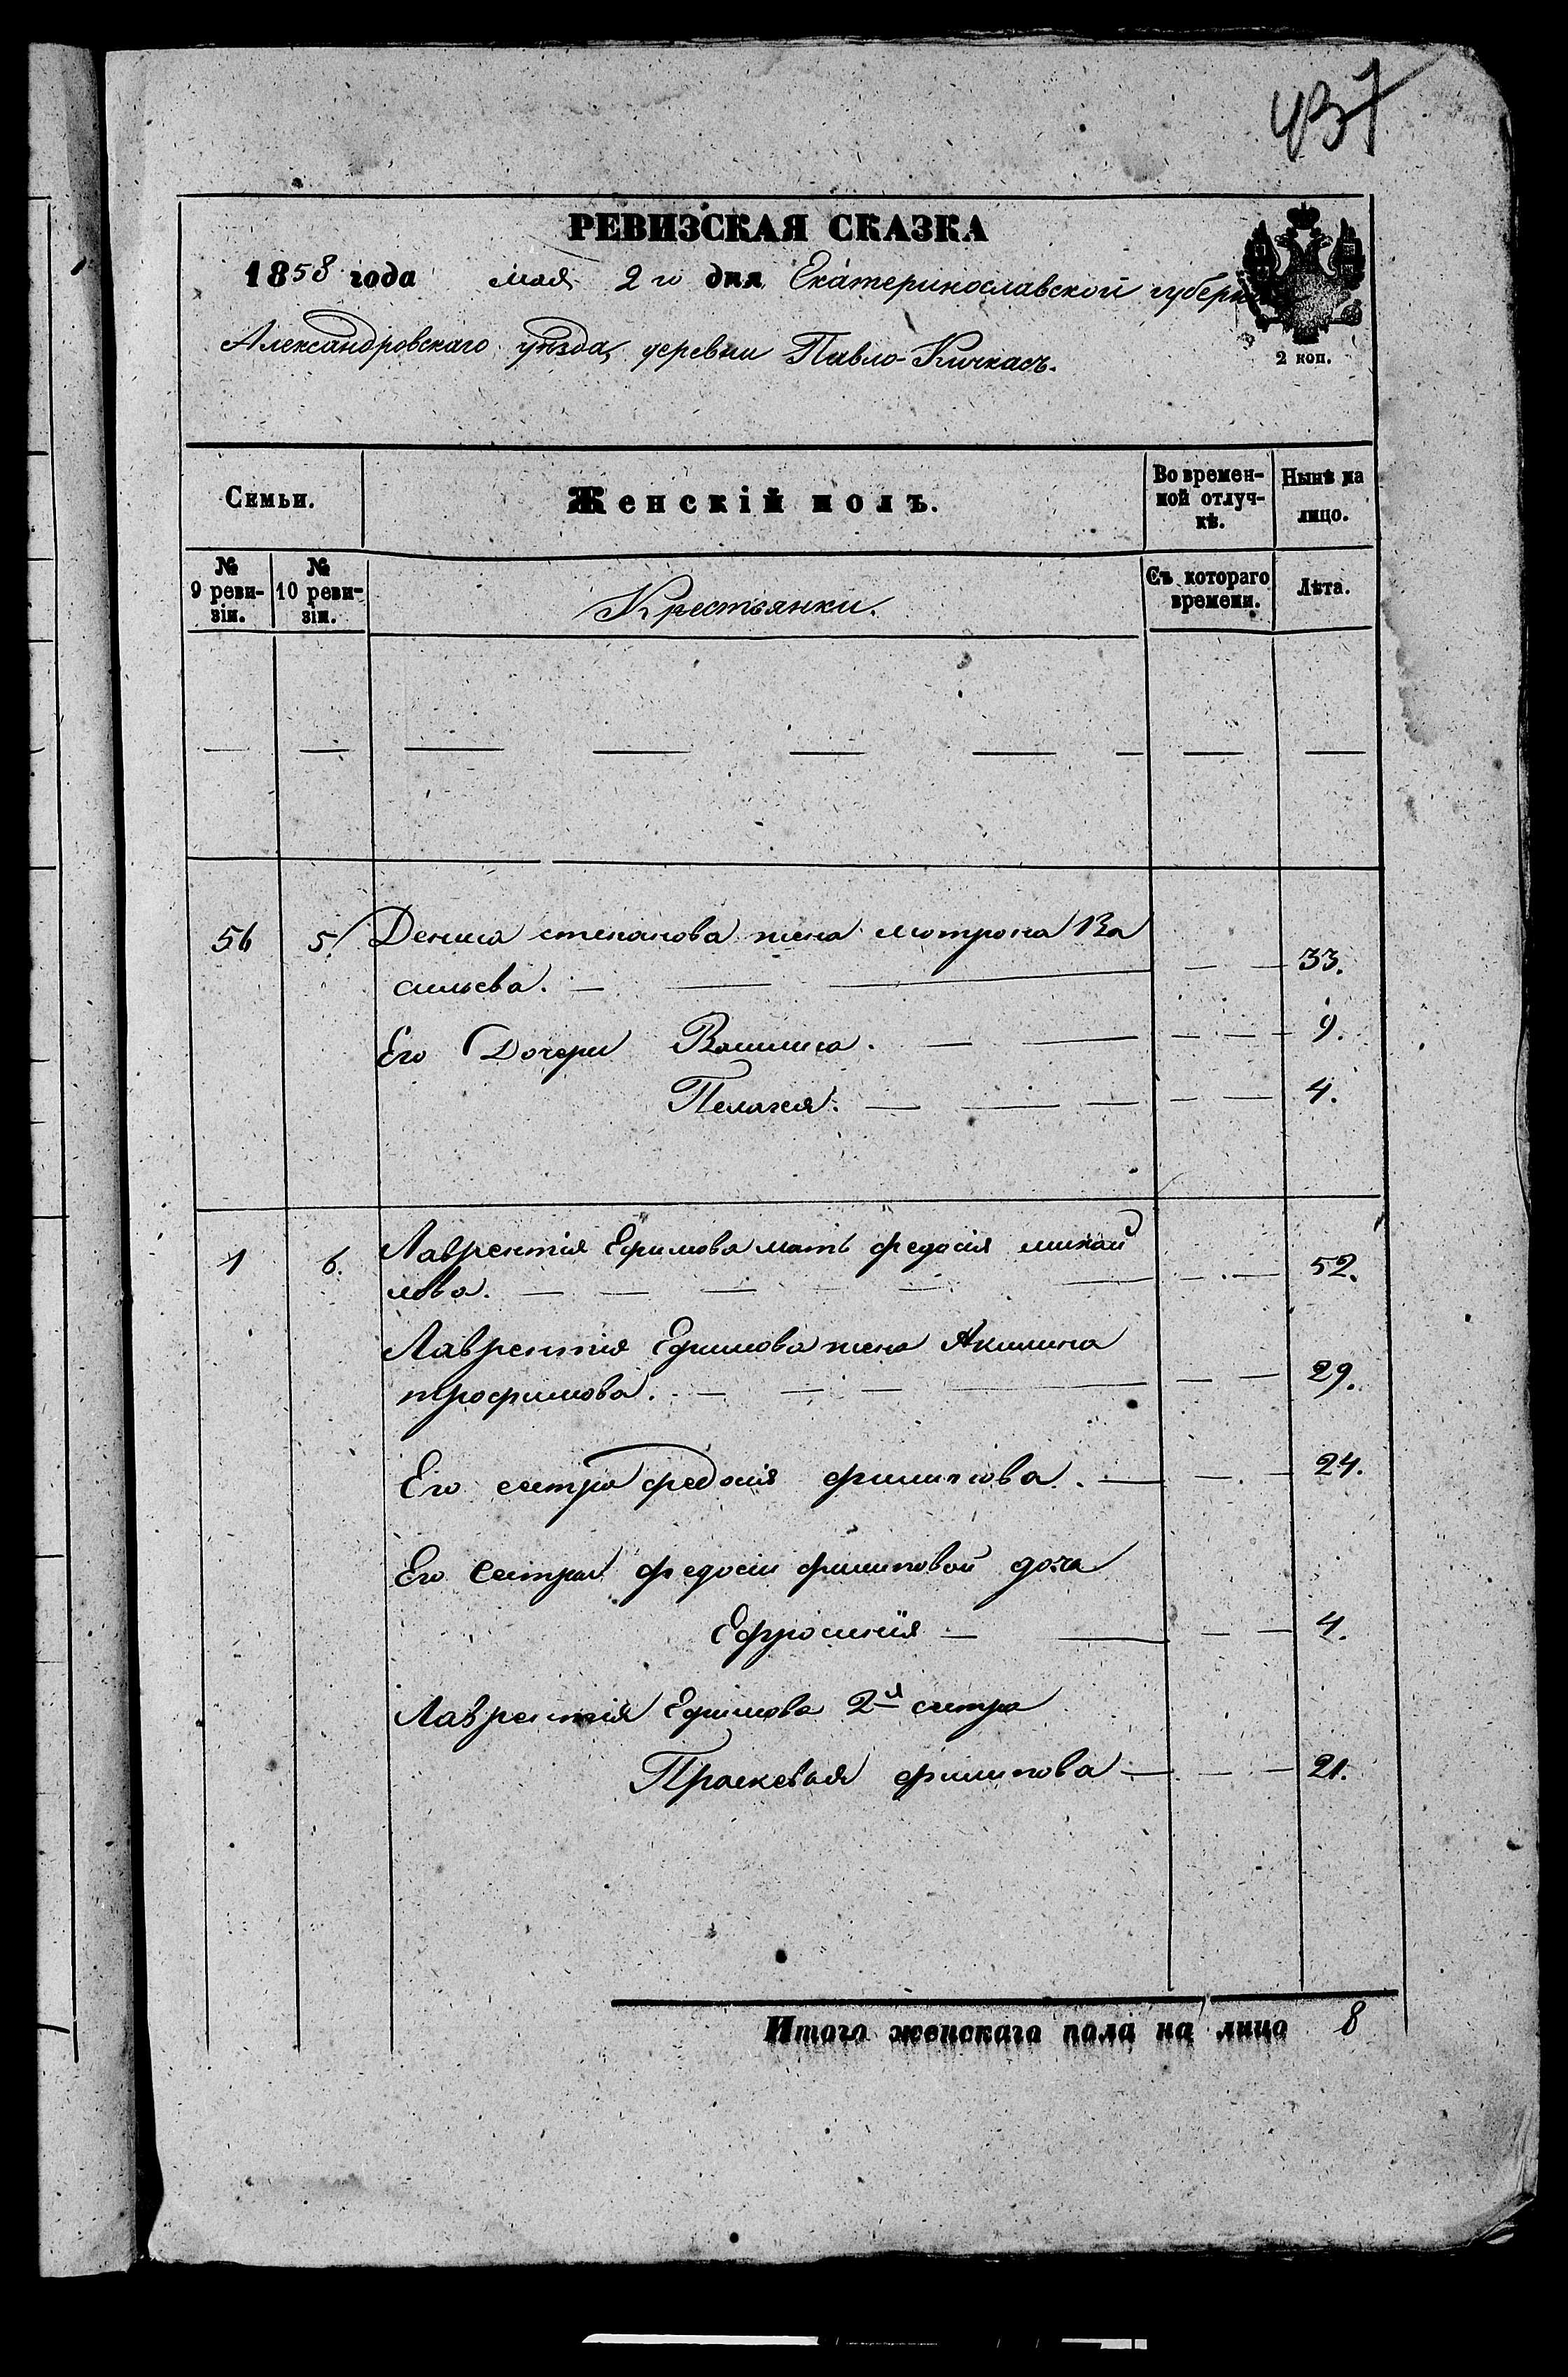 437
РЕВИЗСКАЯ СКАЗКА
1858 года мая 2го дня Екатеринославской губерн
Александровскаго уѣзда, деревни Павло-Кичкасъ.
2 коп.
Семьи. Женскій полъ. Во времен-ной отлуч-кѣ. Нынѣ на лицо.
№ 9 реви-зіи. № 10 реви-зіи. Крестьянки. Съ котораго времени. Лѣта.
56 5. Дениса степанова жена мотрона Ва
сильева. 33.
Его Дочери Василиса. 9.
Пелагея. 4.
1 6. Лаврентія Ефимова мать федосія михай
лова. 52.
Лаврентія Ефимова жена Акилина
трофимова. 29.
Его сестра федосія филипова. 24.
Его Сестры федосіи филиповой доча
Ефросинія 4.
Лаврентія Ефимова 2я сестра
Прасковья филипова 21.
Итого женскаго пола на лицо 8